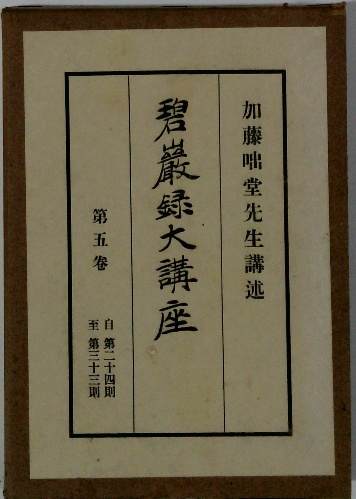 加藤咄堂先生講述
碧巖録大講座
第五卷
自 第二十四則
至 第三十三則